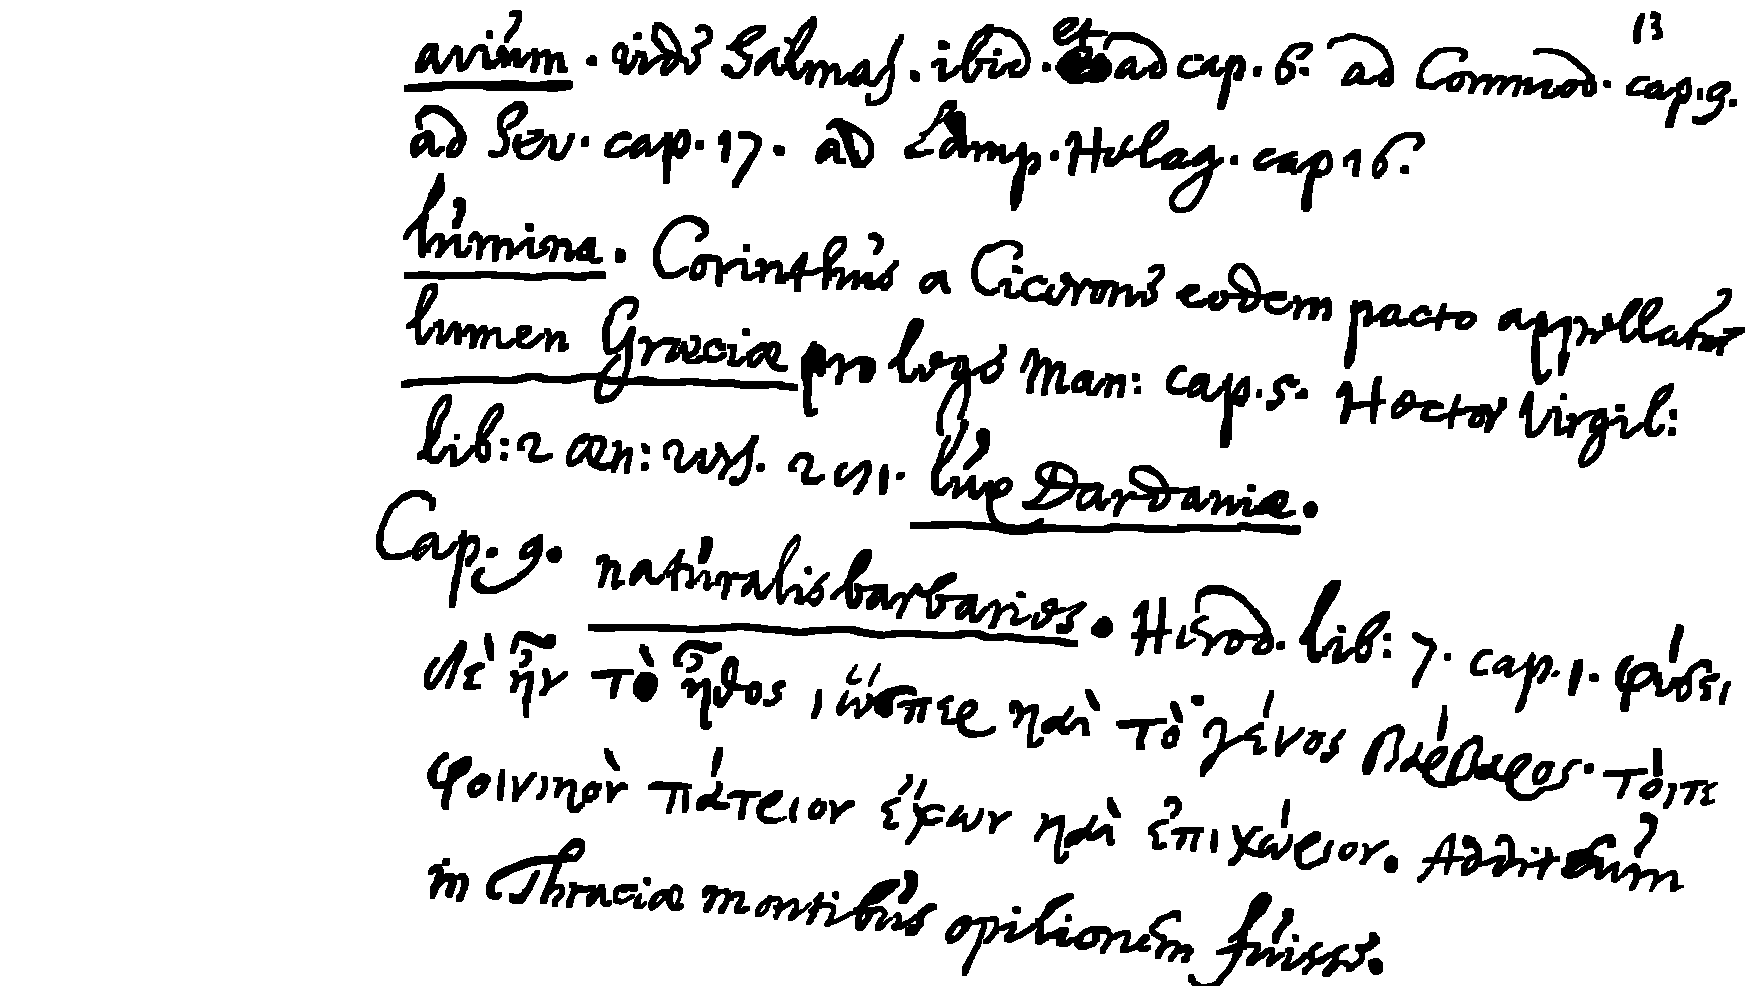 13
avium. vide Salmas. ibid. et ad cap. 6. ad Commod. cap. 9.
ad Sev. cap. 17. ad Lamp. Helag. cap 16.
lumina. Corinthus a Cicerone eodem pacto appellatur
lumen Græciæ pro lege Man: cap. 5. Hector Virgil:
lib: 2 æn: vers. 281. lux Dardaniæ.
Cap. 9. naturalis barbaries. Herod. lib: 7. cap. 1. φύσει
δὲ ἦν τὸ ἦθος, ὥσπερ καὶ τὸ γένος βάρβαρος. τότε
φοινικὸν πάτριον ἔχων καὶ ἐπιχώριον. Addit eum
in Thraciæ montibus opilionem fuisse.